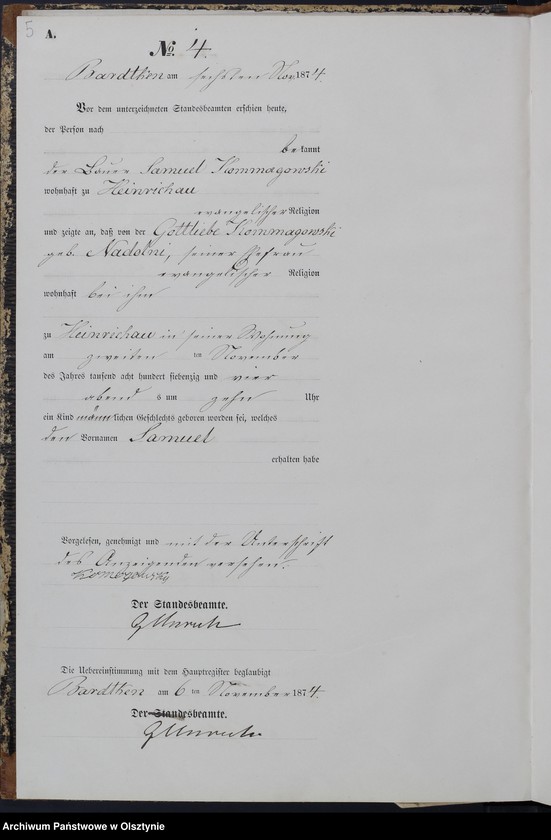 5
A.
No. 4.
Bardthen am sechsten Nov 1874.
Vor dem unterzeichneten Standesbeamten erschien heute,
der Person nach
bekannt
der Bauer Samuel Kommagowski
wohnhaft zu Heinrichau
evangelischer Religion
und zeigte an, daß von der Gottliebe Kommagowski
geb. Nadolni, seiner Ehefrau
evangelischer Religion
wohnhaft bei ihm
zu Heinrichau in seiner Wohnung
am zweiten ten November
des Jahres tausend acht hundert siebenzig und vier
abend s um zehn Uhr
ein Kind männlichen Geschlechts geboren worden sei, welches
den Vornamen Samuel
erhalten habe
Vorgelesen, genehmigt und mit der Unterschrift
des Anzeigenden versehen.
Der Standesbeamte.
Die Uebereinstimmung mit dem Hauptregister beglaubigt
Bardthen am 6 ten November 1874.
Der Standesbeamte.
Archiwum Państwowe w Olsztynie